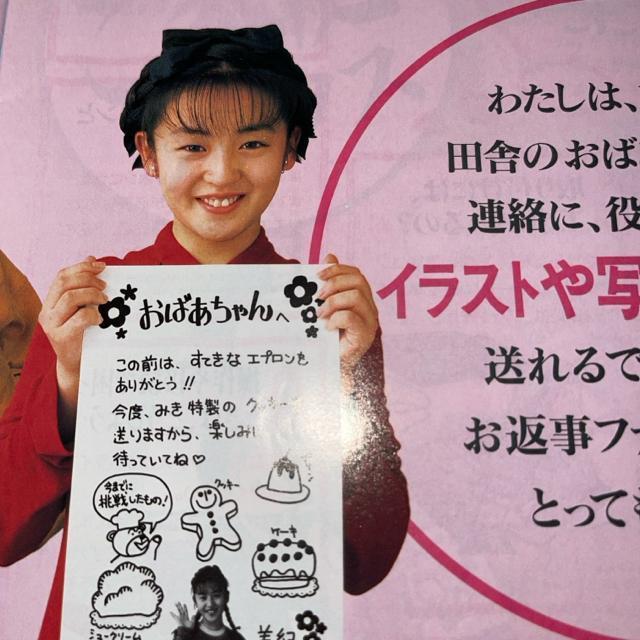 おばあちゃんへ
この前は、すてきな エプロンを
ありがとう!!
今度、みき特製の クッキー
送りますから、楽しみ
待っていてね♡
今までに
挑戦したもの!
クッキー
ケーキ
シュークリーム
美紀
わたしは、
田舎のおば
連絡に、役
イラストや写
送れるで
お返事フ
とって